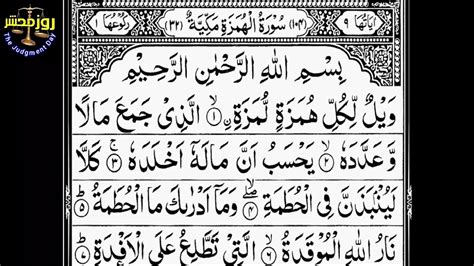 روز محشر
The Judgment Day
اٰيَاتُهَا ٩
(١٠٤) سُوْرَةُ الْهُمَزَةِ مَكِّيَّةٌ (٣٢)
رُكُوْعُهَا ١
بِسْمِ اللّٰهِ الرَّحْمٰنِ الرَّحِيْمِ
وَيْلٌ لِّكُلِّ هُمَزَةٍ لُّمَزَةِ ۙ ﴿١﴾ الَّذِيْ جَمَعَ مَالًا
وَّ عَدَّدَهٗ ۙ ﴿٢﴾ يَحْسَبُ اَنَّ مَالَهٗۤ اَخْلَدَهٗ ۚ ﴿٣﴾ كَلَّا
لَيُنْۢبَذَنَّ فِي الْحُطَمَةِ ۖ ﴿٤﴾ وَمَاۤ اَدْرٰىكَ مَا الْحُطَمَةُ ؕ ﴿٥﴾
نَارُ اللّٰهِ الْمُوْقَدَةُ ۙ ﴿٦﴾ الَّتِيْ تَطَّلِعُ عَلَى الْاَفْـِٕدَةِ ؕ ﴿٧﴾